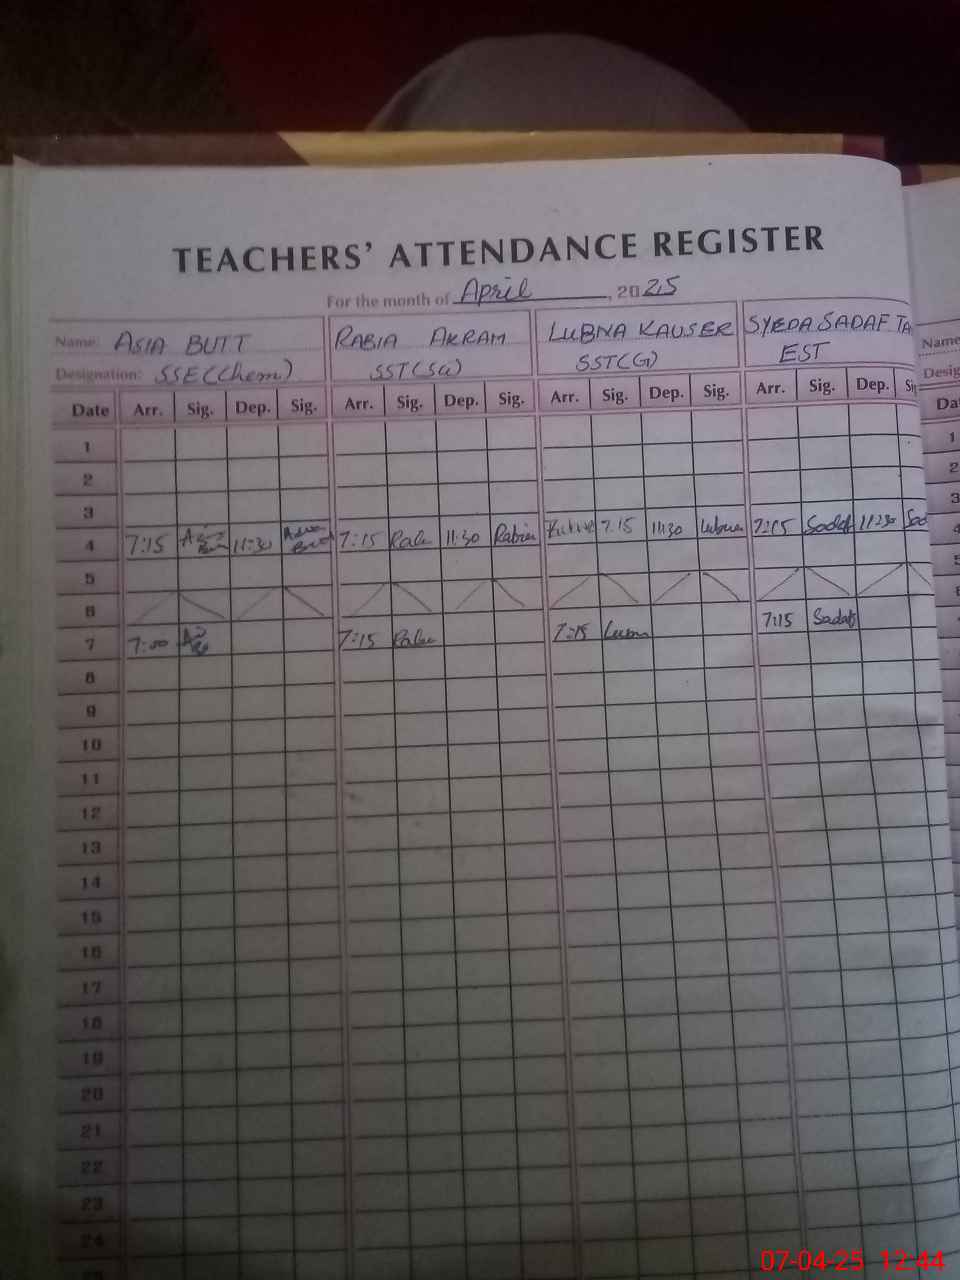 TEACHERS' ATTENDANCE REGISTER
For the month of April, 2025
Name: ASIA BUTT RABIA AKRAM LUBNA KAUSER SYEDA SADAF TA Name
Designation: SSE(Chem) SST(Sci) SST(G) EST Desig
Date Arr. Sig. Dep. Sig. Arr. Sig. Dep. Sig. Arr. Sig. Dep. Sig. Arr. Sig. Dep. Sig Da
1 1
2 2
3 3
4 7:15 11:30 7:15 11:30 7:15 11:30 7:15 Sadaf 11:30 Sad 4
5 5
6 6
7 7:00 7:15 7:15 7:15 Sadaf
8
9
10
11
12
13
14
15
16
17
18
19
20
21
22
23
24
07-04-25 12:44